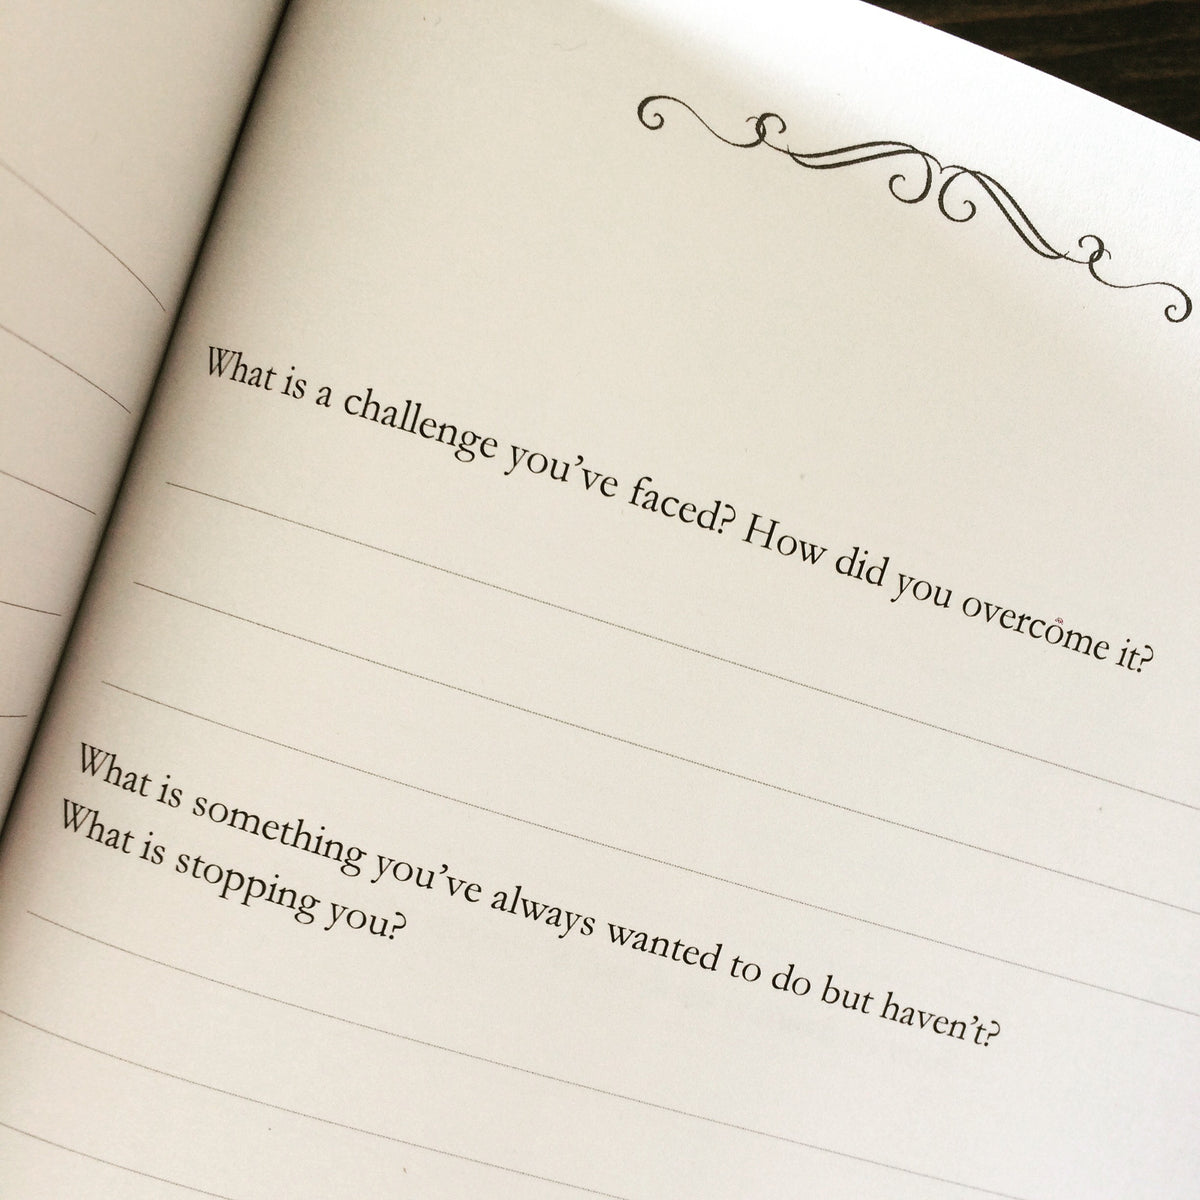 What is a challenge you’ve faced? How did you overcome it?
What is something you’ve always wanted to do but haven’t?
What is stopping you?